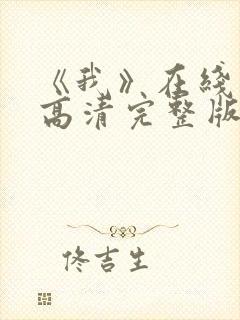 《我》在綫
高清完整版
佟吉生